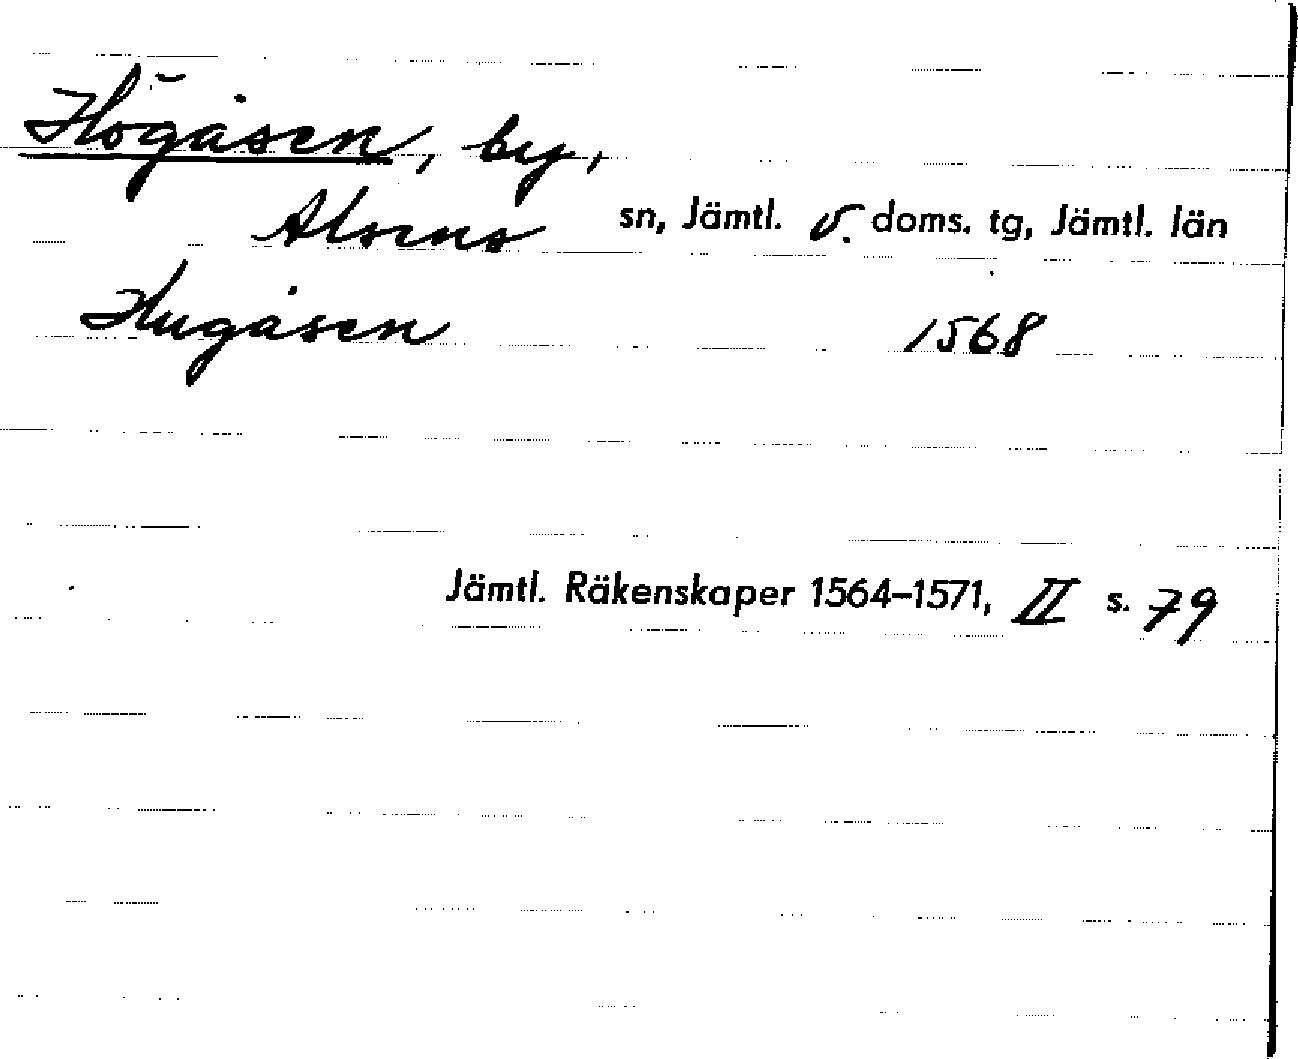 Högåsen, by,
Alsens sn, Jämtl. v. doms. tg, Jämtl. län
Hugåsen 1568
Jämtl. Räkenskaper 1564–1571, II s. 79